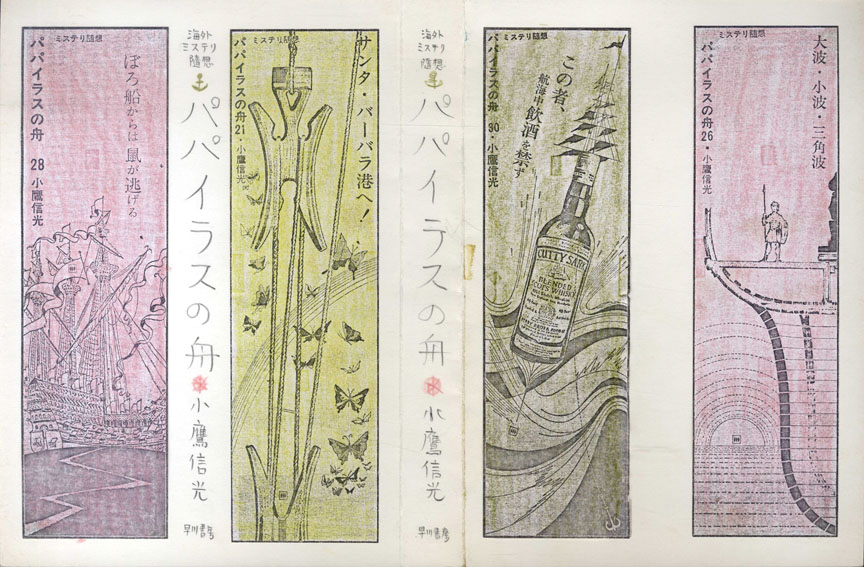 ミステリ随想
ぼろ船からは鼠が逃げる
パパイラスの舟 28 小鷹信光
海外
ミステリ
随想
パパイラスの舟
小鷹信光
早川書房
ミステリ随想
サンタ・バーバラ港へ！
パパイラスの舟 21・小鷹信光
海外
ミステリ
随想
パパイラスの舟
小鷹信光
早川書房
ミステリ随想
この者、
航海中飲酒を禁ず
パパイラスの舟 30・小鷹信光
CUTTY SARK
BLENDED
SCOTS WHISKY
ミステリ随想
大波・小波・三角波
パパイラスの舟 26・小鷹信光